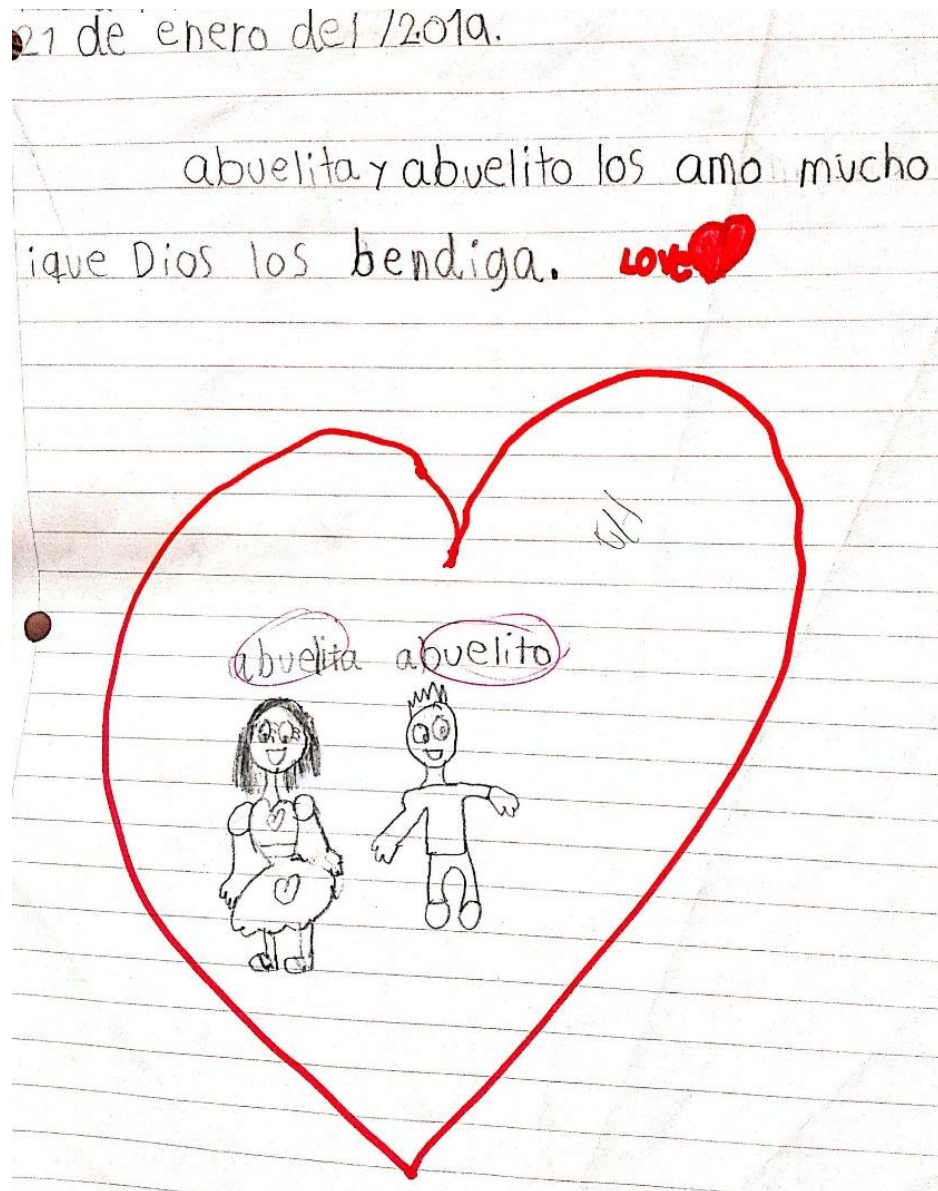 21 de enero del /2019.
abuelita y abuelito los amo mucho
¡que Dios los bendiga. LOVE
abuelita abuelito